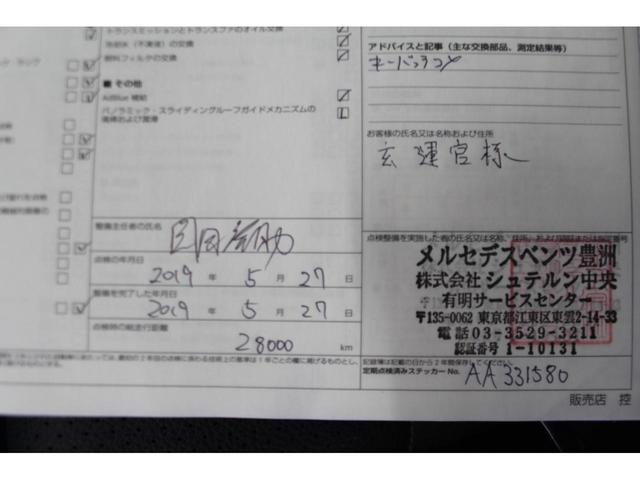 トランスミッションとトランスファのオイル交換
冷却水(不凍液)の交換
燃料フィルタの交換
■ その他
AdBlue 補給
パノラミック・スライディングルーフガイドメカニズムの
清掃および潤滑
整備主任者の氏名
点検の年月日
2019 年 5 月 27 日
整備を完了した年月日
2019 年 5 月 27 日
点検時の総走行距離
28000 km
アドバイスと記事(主な交換部品、測定結果等)
キーバッテリー
お客様の氏名又は名称および住所
様
点検整備を実施した者の氏名又は名称、住所、および認証または指定番号
メルセデスベンツ豊洲
株式会社 シュテルン中央
有明サービスセンター
〒135-0062 東京都江東区東雲2-14-33
電話 03-3529-3211
認証番号 1-10131
記録簿は記載の日から2年間保存してください。
定期点検済みステッカー No. AA331580
販売店 控